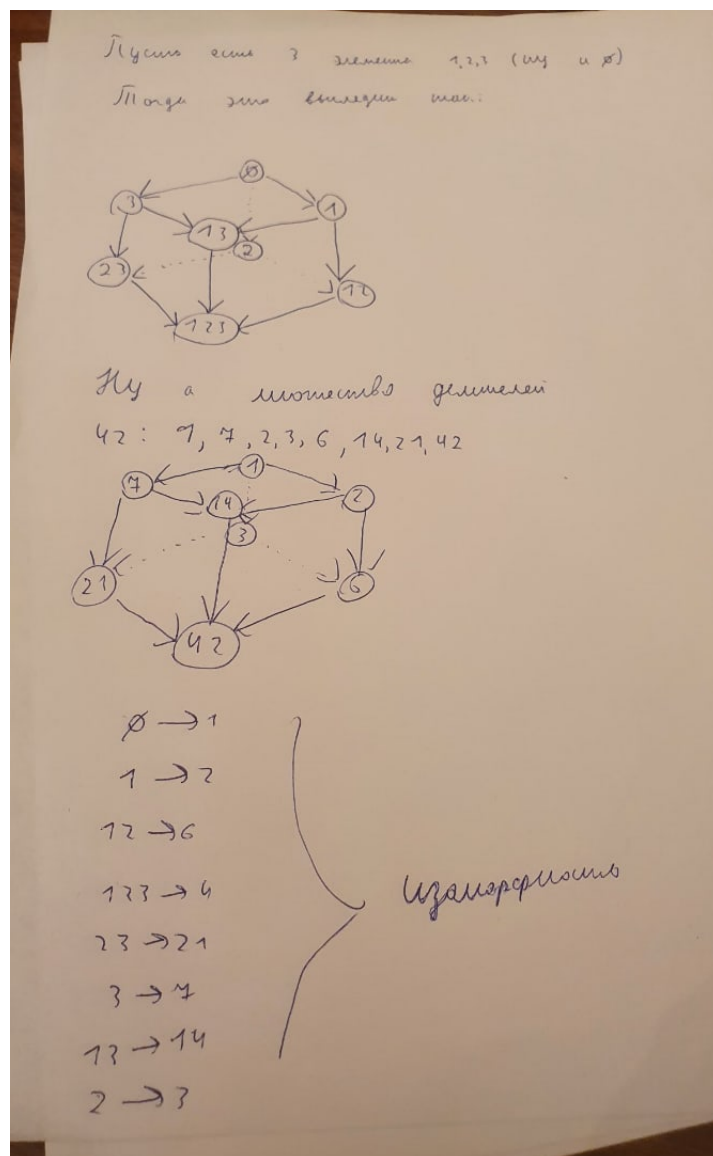 Пусть есть 3 элемента 1,2,3 (ну и ∅)
Тогда это выглядит так:
∅
3
1
13
2
23
12
123
Ну а множество делителей
42: 1, 7, 2, 3, 6, 14, 21, 42
1
7
14
2
3
21
6
42
∅ → 1
1 → 2
12 → 6
123 → 4
23 → 21
3 → 7
13 → 14
2 → 3
Изоморфность